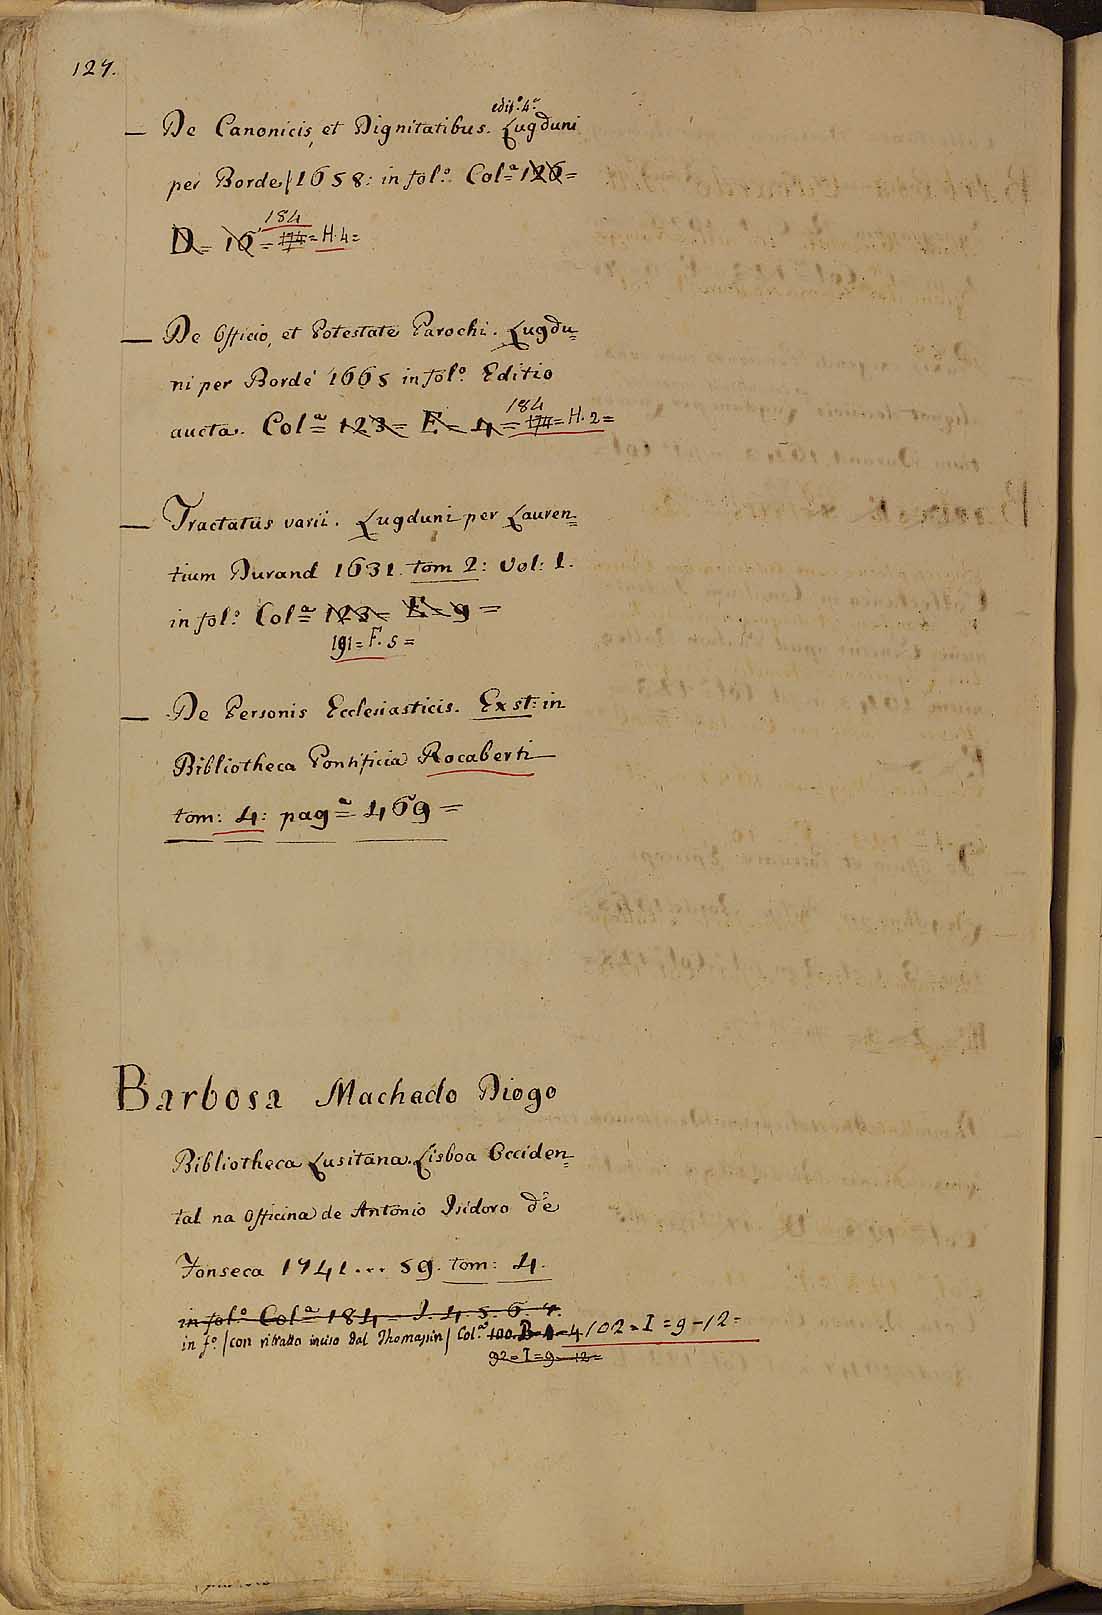 127.
edit.º 4.ª
— De Canonicis, et Dignitatibus. Lugduni
per Borde 1658: in fol.º Col.ª 126=
184
D= 16= 174= H. 4=
— De Officio, et Potestate Parochi. Lugdu=
ni per Borde 1665 in fol.º Editio
184
aucta. Col.ª 123= E= 4= 174= H. 2=
— Tractatus varii. Lugduni per Lauren=
tium Durand 1631. tom 2: Vol: 1.
in fol.º Col.ª 123= E= 9=
191= F. 5=
— De Personis Ecclesiasticis. Exst: in
Bibliotheca Pontificia Rocaberti
tom: 4: pag.ª 469=
Barbosa Machado Diogo
Bibliotheca Lusitana. Lisboa Occiden=
tal na Officina de Antonio Isidoro de
Fonseca 1741... 59. tom: 4.
in fol.º Col.ª 184= I. 4. 5. 6. 7.
in f.º /con ritratto inciso dal Thomassin/ Col.ª 100. B 1-4 102= I= 9-12=
92= I= 9-12=